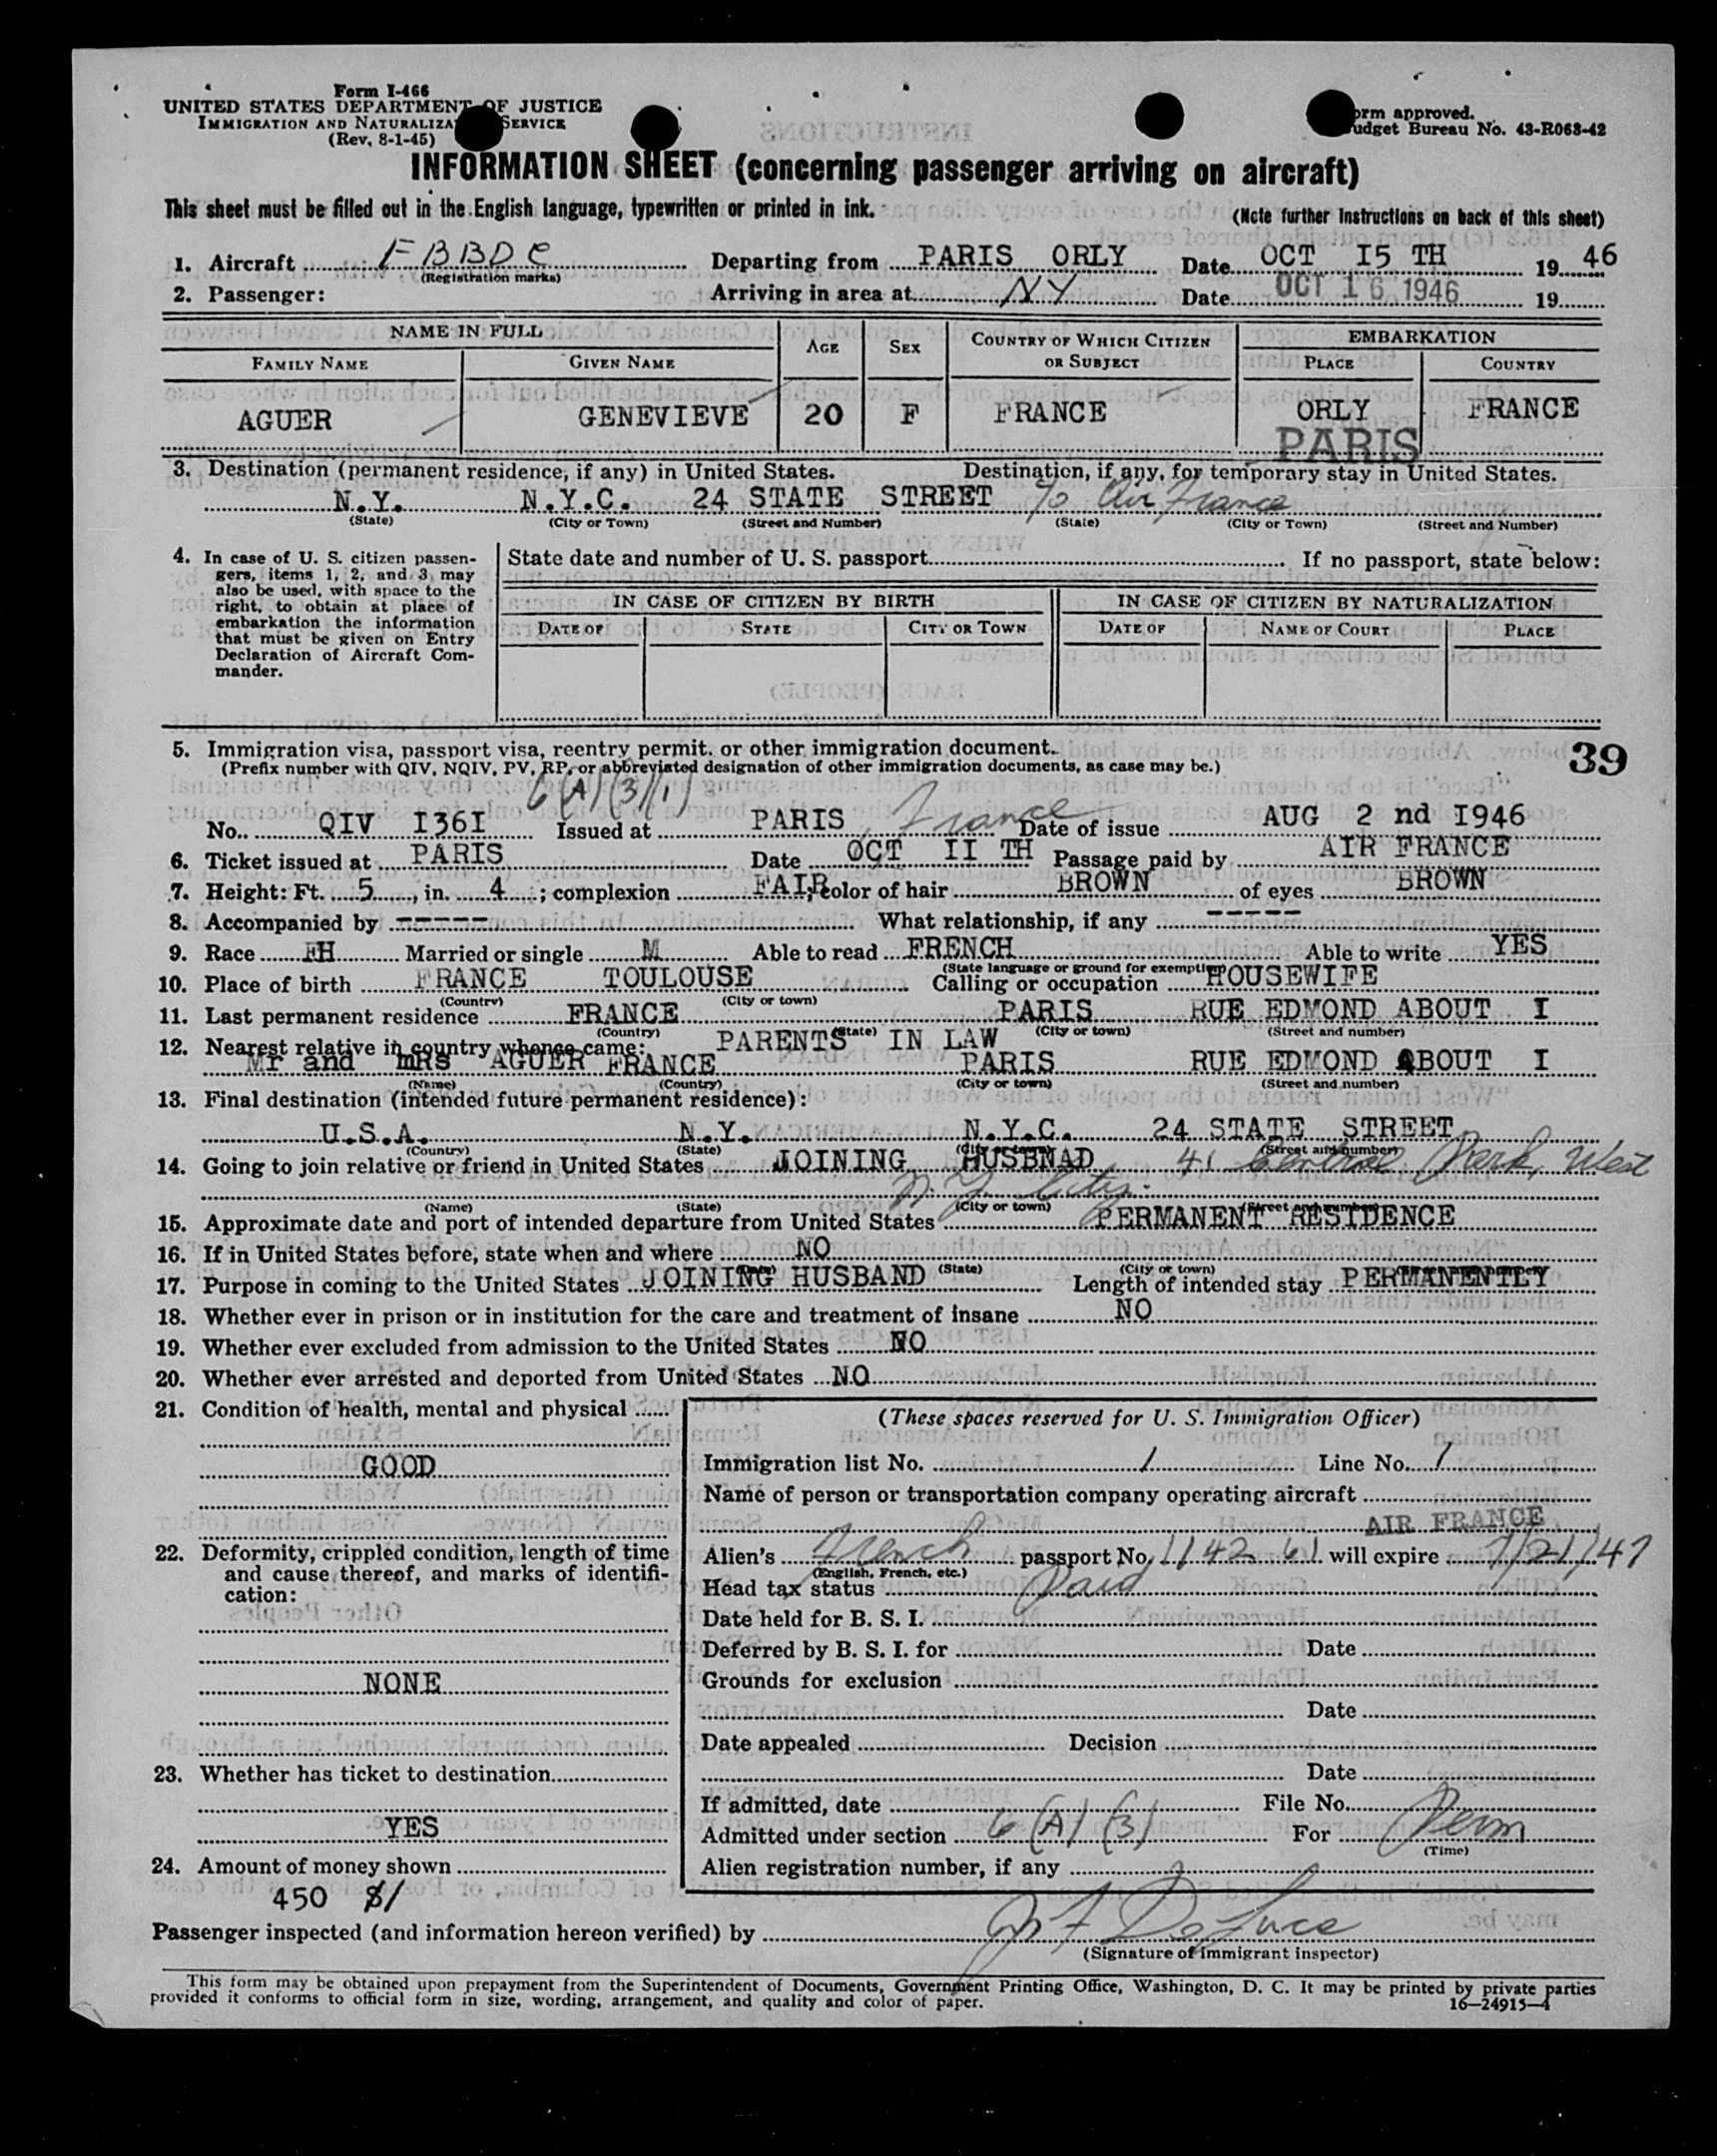 Form I-466
UNITED STATES DEPARTMENT OF JUSTICE
IMMIGRATION AND NATURALIZA SERVICE
(Rev. 8-1-45)
orm approved.
udget Bureau No. 43-R063-42
INFORMATION SHEET (concerning passenger arriving on aircraft)
This sheet must be filled out in the English language, typewritten or printed in ink.
(Note further instructions on back of this sheet)
1. Aircraft FBBDC Departing from PARIS ORLY Date OCT I5 TH 19 46
(Registration marks)
2. Passenger: Arriving in area at NY Date OCT 16 1946 19
NAME IN FULL AGE SEX COUNTRY OF WHICH CITIZEN OR SUBJECT EMBARKATION
FAMILY NAME GIVEN NAME PLACE COUNTRY
AGUER GENEVIEVE 20 F FRANCE ORLY FRANCE
PARIS
3. Destination (permanent residence, if any) in United States. Destination, if any, for temporary stay in United States.
N.Y. N.Y.C. 24 STATE STREET c/o Air France
(State) (City or Town) (Street and Number) (State) (City or Town) (Street and Number)
4. In case of U. S. citizen passen-
gers, items 1, 2, and 3 may
also be used, with space to the
right, to obtain at place of
embarkation the information
that must be given on Entry
Declaration of Aircraft Com-
mander.
State date and number of U. S. passport If no passport, state below:
IN CASE OF CITIZEN BY BIRTH IN CASE OF CITIZEN BY NATURALIZATION
DATE OF STATE CITY OR TOWN DATE OF NAME OF COURT PLACE
5. Immigration visa, passport visa, reentry permit, or other immigration document.
39
(Prefix number with QIV, NQIV, PV, RP, or abbreviated designation of other immigration documents, as case may be.)
6(A)(3)(1)
No. QIV I36I Issued at PARIS, France Date of issue AUG 2 nd I946
6. Ticket issued at PARIS Date OCT II TH Passage paid by AIR FRANCE
7. Height: Ft. 5, in. 4; complexion FAIR; color of hair BROWN of eyes BROWN
8. Accompanied by ----- What relationship, if any -----
9. Race FH Married or single M Able to read FRENCH Able to write YES
(State language or ground for exemption)
10. Place of birth FRANCE TOULOUSE Calling or occupation HOUSEWIFE
(Country) (City or town)
11. Last permanent residence FRANCE PARIS RUE EDMOND ABOUT I
(Country) (State) (City or town) (Street and number)
12. Nearest relative in country whence came: PARENTS IN LAW
Mr and mRS AGUER FRANCE PARIS RUE EDMOND ABOUT I
(Name) (Country) (City or town) (Street and number)
13. Final destination (intended future permanent residence):
U.S.A. N.Y. N.Y.C. 24 STATE STREET
(Country) (State) (City or town) (Street and number)
14. Going to join relative or friend in United States JOINING HUSBNAD 41 Central Park, West
N.Y. City.
(Name) (State) (City or town) (Street and number)
15. Approximate date and port of intended departure from United States PERMANENT RESIDENCE
16. If in United States before, state when and where NO
(State) (City or town)
17. Purpose in coming to the United States JOINING HUSBAND Length of intended stay PERMANENTLY
18. Whether ever in prison or in institution for the care and treatment of insane NO
19. Whether ever excluded from admission to the United States NO
20. Whether ever arrested and deported from United States NO
21. Condition of health, mental and physical
GOOD
22. Deformity, crippled condition, length of time
and cause thereof, and marks of identifi-
cation:
NONE
23. Whether has ticket to destination
YES
24. Amount of money shown
450 $/
(These spaces reserved for U. S. Immigration Officer)
Immigration list No. 1 Line No. 1
Name of person or transportation company operating aircraft
AIR FRANCE
Alien's French passport No. 114261 will expire 7/21/47
(English, French, etc.)
Head tax status Paid
Date held for B. S. I.
Deferred by B. S. I. for Date
Grounds for exclusion
Date
Date appealed Decision
Date
If admitted, date File No.
Admitted under section 6(A)(3) For Perm
(Time)
Alien registration number, if any
Passenger inspected (and information hereon verified) by
(Signature of immigrant inspector)
This form may be obtained upon prepayment from the Superintendent of Documents, Government Printing Office, Washington, D. C. It may be printed by private parties
provided it conforms to official form in size, wording, arrangement, and quality and color of paper.
16—24915-4